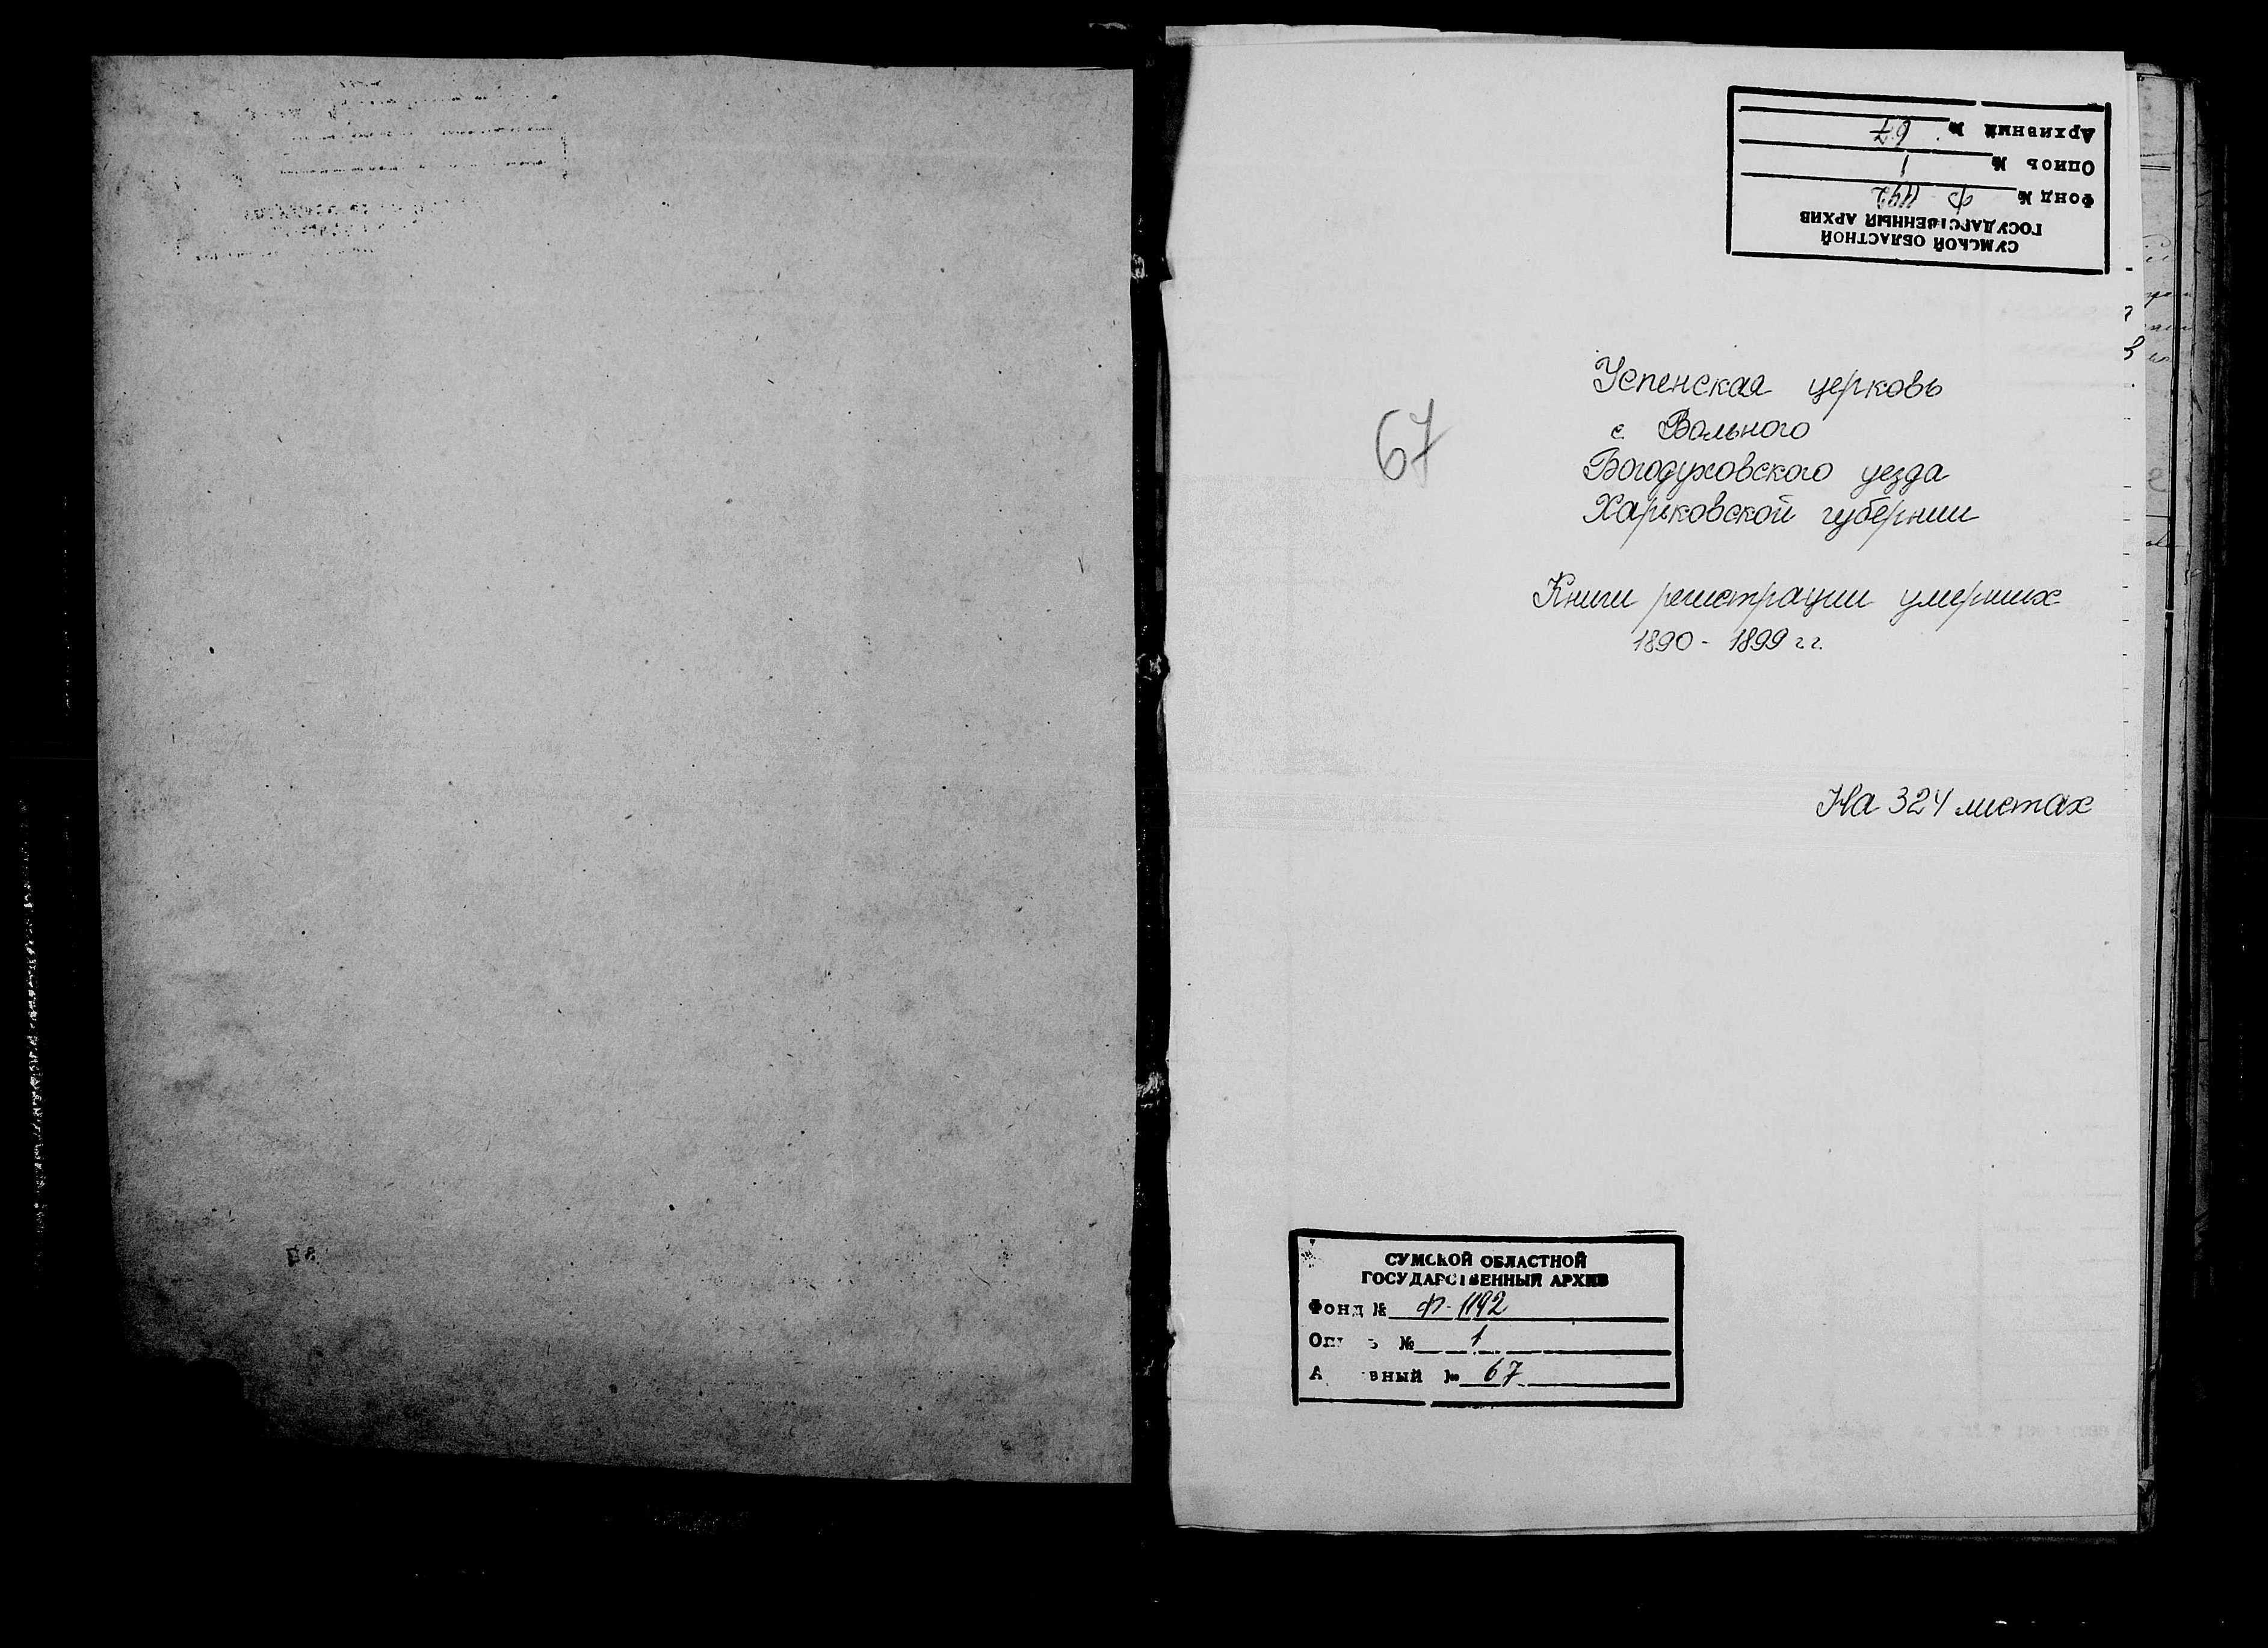 СУМСКОЙ ОБЛАСТНОЙ
ГОСУДАРСТВЕННЫЙ АРХИВ
Фонд № Ф 1192
Опись № 1
Архивный № 67
67
Успенская церковь
с. Вольного
Богодуховского уезда
Харьковской губернии
Книги регистрации умерших
1890 - 1899 гг.
На 324 листах
СУМСКОЙ ОБЛАСТНОЙ
ГОСУДАРСТВЕННЫЙ АРХИВ
Фонд № Ф-1192
Опись № 1
Архивный № 67